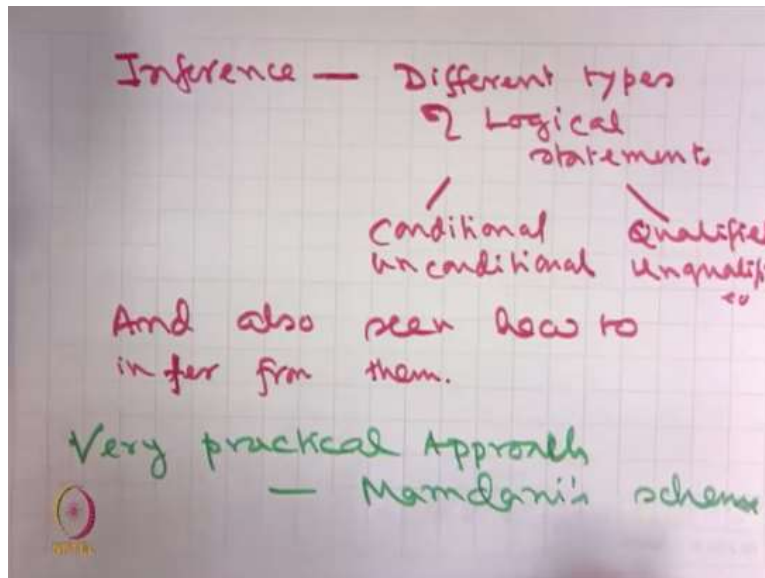 Inference — Different types
of Logical
statements
Conditional Qualifie
unconditional Unqualif
ed
And also seen how to
infer from them.
Very practical Approach
— Mamdani's scheme
NPTEL